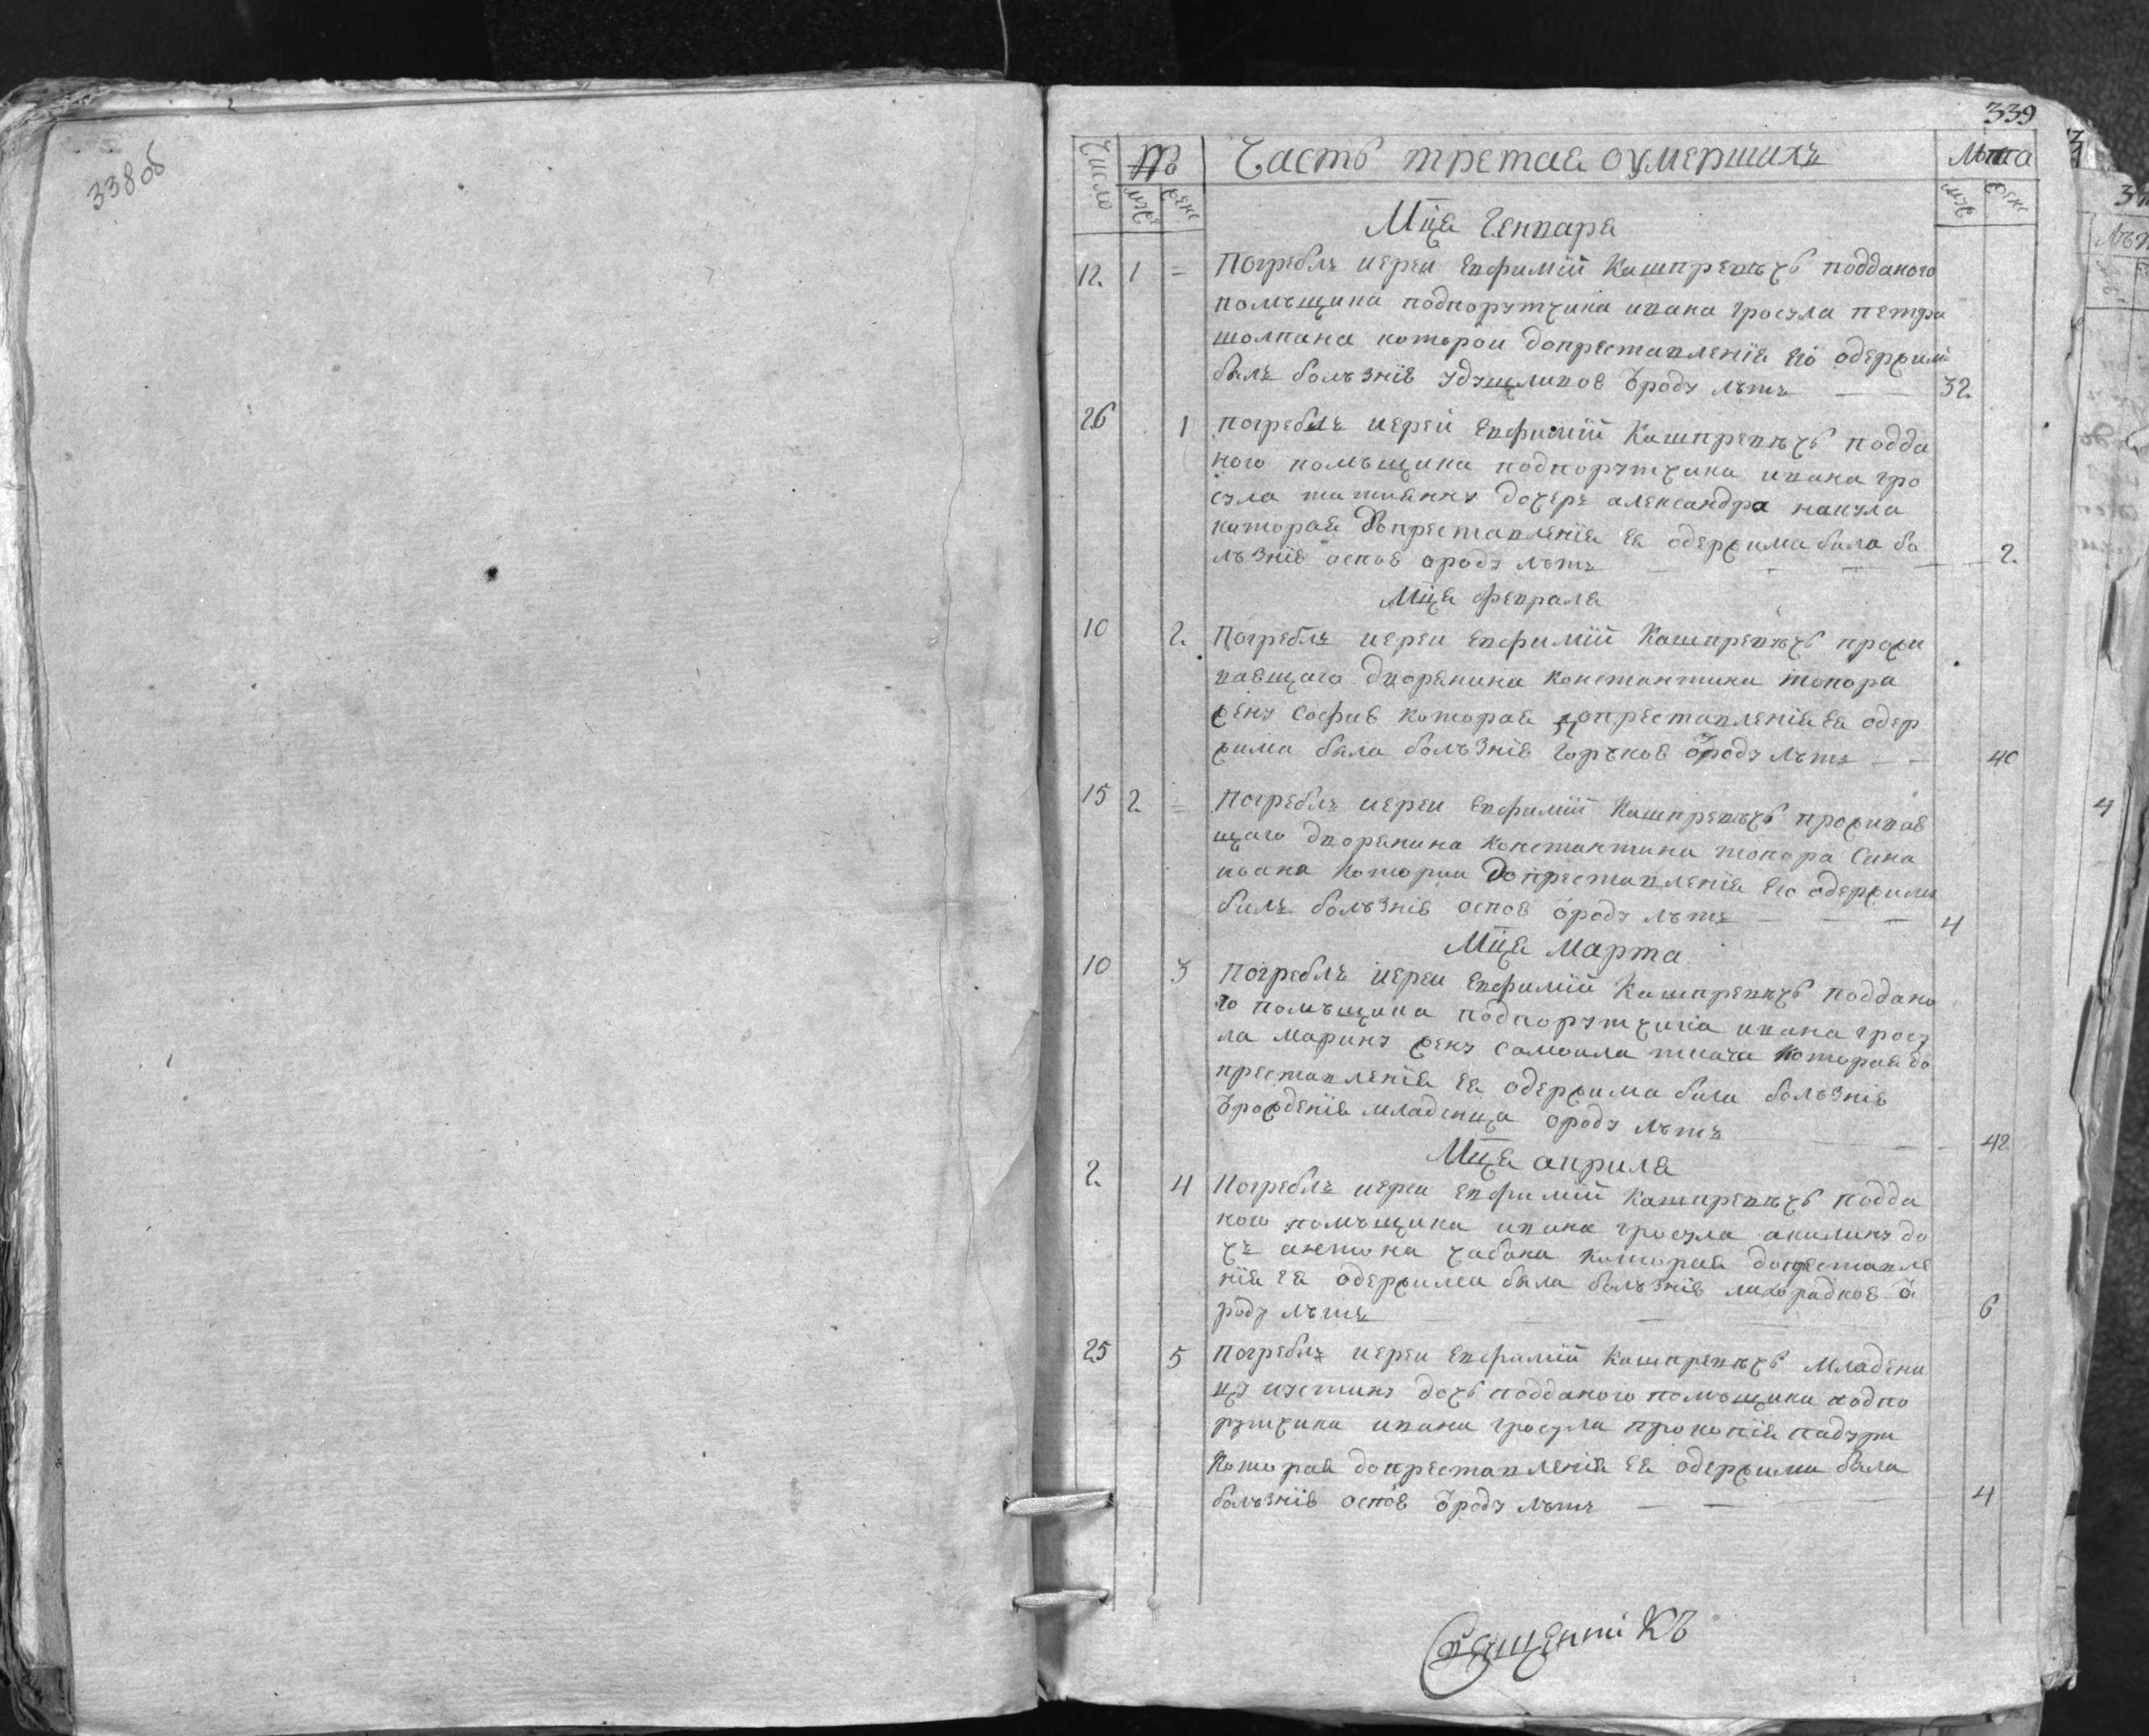 338об
339
Число
№
Часть третая оумершихъ
Лѣта
муж
женс
муж
женс
Мца Генваря
12. 1 = Погреблъ иереи Евфимїй Кашпревѣчь подданого
помѣщика подпорутчика ивана гросула петра
шолпана которои допреставленїя его одержимъ
былъ болѣзнїю удушливою ѿроду лѣтъ — — 32
26 1 погреблъ иерей Евфимїй Кашпревѣчь подда
ного помѣщика подпорутчика ивана гро
сула татиянну дочеръ александра накула
которая допреставленїя ея одержима била бо
лѣзнїю оспою ѿроду лѣтъ — — — — 2
Мца февраля
10 2. Погреблъ иереи Евфимїй Кашпревѣчь прожи
вающаго дворянина константина топора
жену Софию которая допреставленїя ея одер
жима была болѣзнїю горѣкою ѿроду лѣтъ — — 40
15 2. = Погреблъ иереи Евфимїй Кашпревѣчь проживаю
щаго дворянина константина топора Сина
ивана которыи допреставленїя его одержимъ
билъ болѣзнїю оспою ѿроду лѣтъ — — — 4
Мца Марта
10 3 Погреблъ иереи Евфимїй Кашпревѣчь поддано
го помѣщика подпорутчика ивана гросу
ла марину жену самоила ткача которая до
преставленїя ея одержима была болѣзнїю
ѿрожденїя младенца ѿроду лѣтъ — — 42
Мца априля
2. 4 Погреблъ иереи Евфимїй Кашпревѣчь подда
ного помѣщика ивана гросула акилину до
чъ антона чабана которая допреставле
нїя ея одержима была болѣзнїю лихорадкою ѿ
роду лѣтъ — — — 6
25 5 Погреблъ иереи Евфимїй Кашпревѣчь младени
цу иустину дочь подданого помѣщика подпо
рутчика ивана гросула прокопїя падури
которая допреставленїя ея одержима была
болѣзнїю оспою ѿроду лѣтъ — — — 4
Священникъ